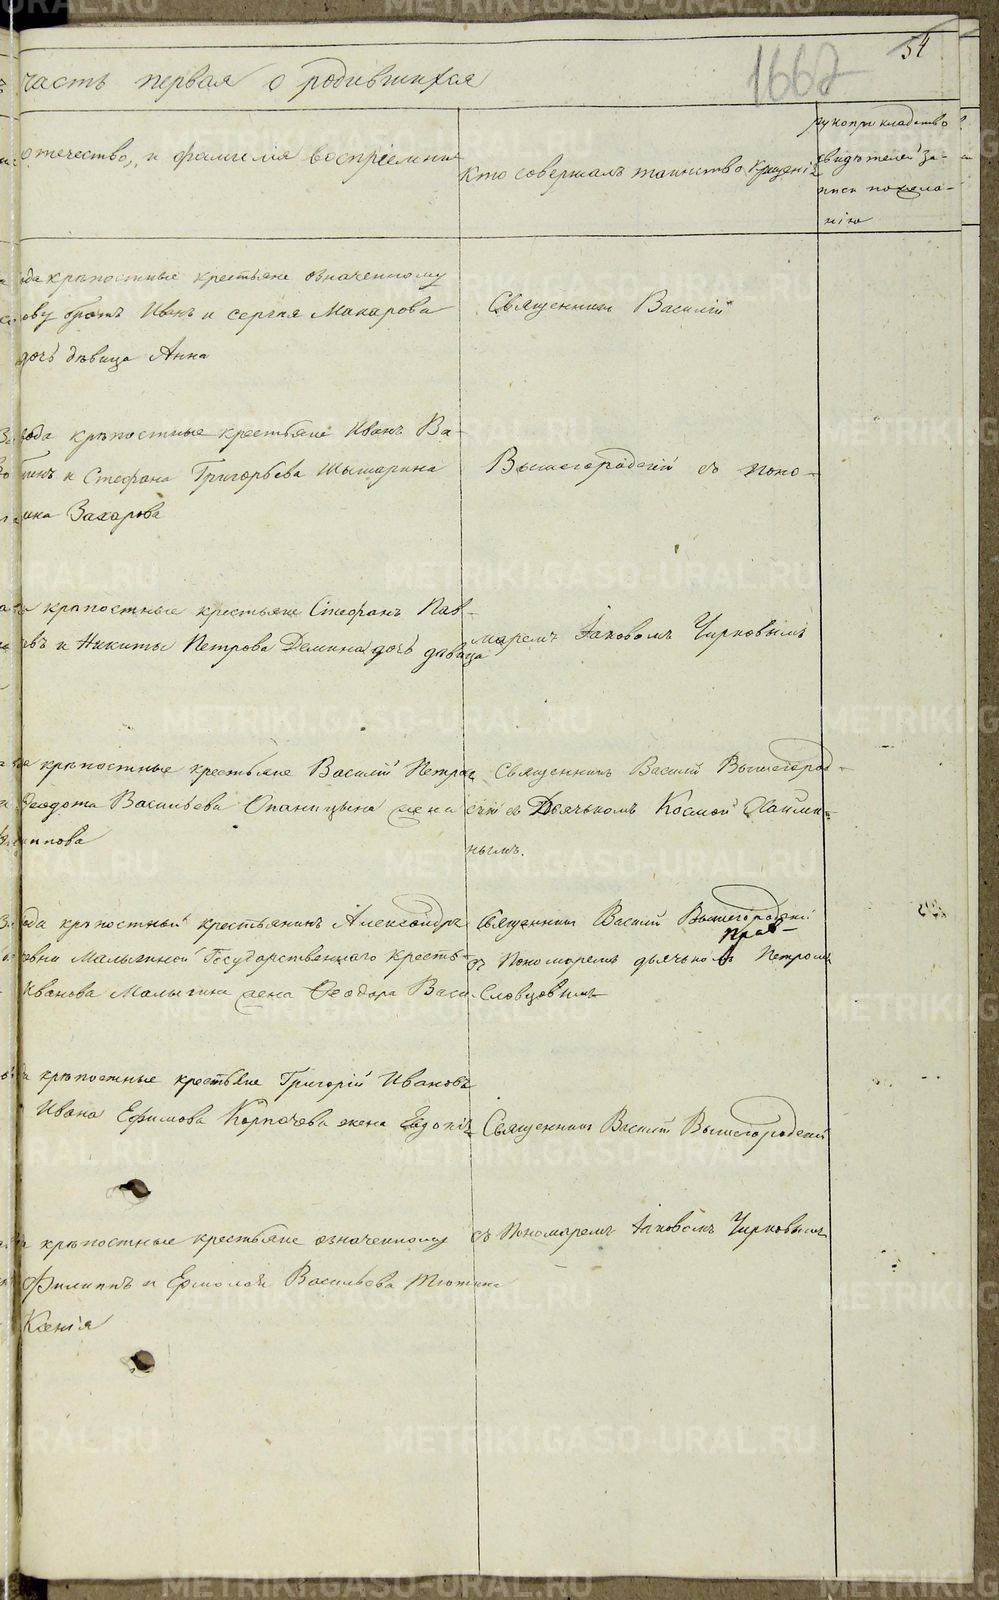 54
1667
часть первая о родившихся
отечество, и фамилія воспріемник
Кто совершалъ таинство крещенія
рукоприкладство
свидѣтелей за-
писи по жела-
нію
крѣпостные крестьяне означенному
братъ Иванъ и Сергѣя Макарова
дочь дѣвица Анна
Священникъ Василій
крѣпостные крестьяне Иванъ Ва-
и Стефана Григорьева Шышарина
Захарова
Вышегородскій съ поно-
крѣпостные крестьяне Стефанъ Пав-
и Никиты Петрова Демина дочь дѣвица
маремъ Іаковомъ Чирковымъ
крѣпостные крестьяне Василій Петров
Феодота Васильева Опаницына жена
Священникъ Василій Вышегород-
скій съ Дьячькомъ Космой Хайми-
нымъ.
крѣпостный крестьянинъ Александръ
Малыгиной Государственнаго кресть-
Иванова Малыгина жена Феодора Васи-
Священникъ Василій Вышегородскій
прав-
съ Пономаремъ дьячьковъ Петромъ
Словцовымъ
крѣпостные крестьяне Григорій Ивановъ
Ивана Ефимова Корпачева жена Евдокія
Священникъ Василій Вышегородскій
крѣпостные крестьяне означенному
Филиппъ и Ермолая Васильева Тютина
Ксенія
съ Пономаремъ Іаковомъ Чирковымъ
METRIKI.GASO-URAL.RU